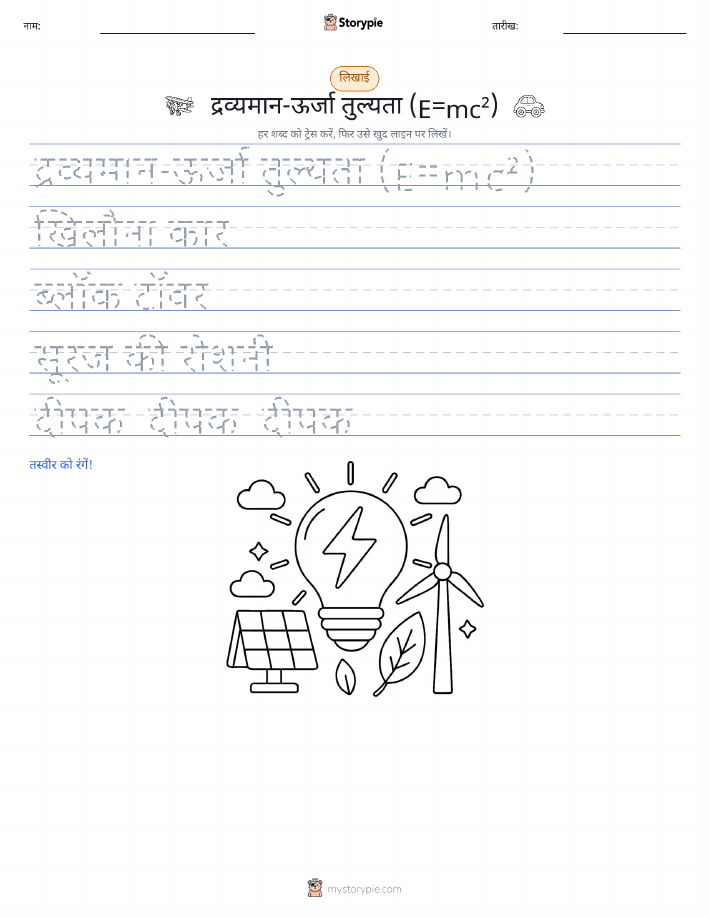 नाम:
Storypie
तारीख:
लिखाई
द्रव्यमान-ऊर्जा तुल्यता (E=mc²)
हर शब्द को ट्रेस करें, फिर उसे खुद लाइन पर लिखें।
द्रव्यमान-ऊर्जा तुल्यता (E=mc²)
खिलौना कार
ब्लॉक टॉवर
सूरज की रोशनी
दीपक दीपक दीपक
तस्वीर को रंगें!
mystorypie.com